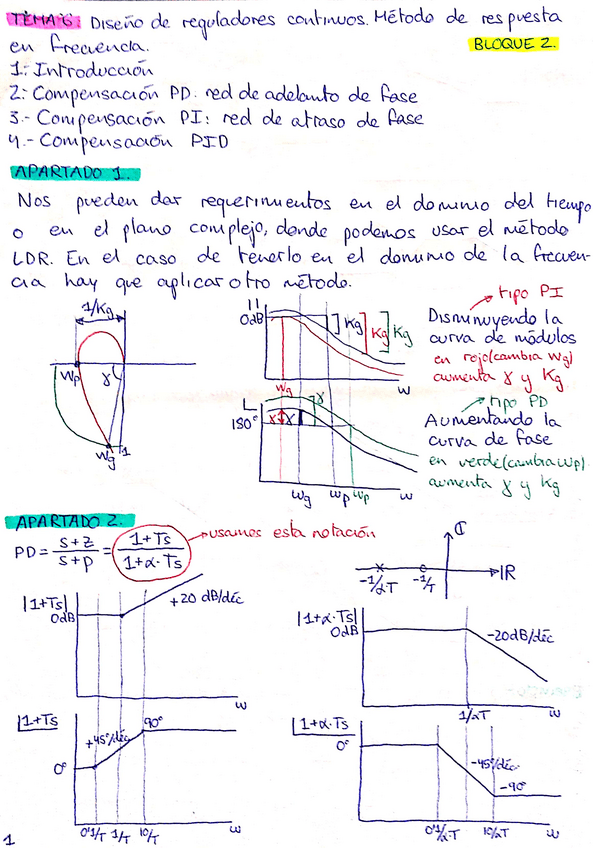 TEMA 6: Diseño de reguladores continuos. Método de respuesta
en frecuencia.
BLOQUE 2.
1.- Introducción
2.- Compensación PD: red de adelanto de fase
3.- Compensación PI: red de atraso de fase
4.- Compensación PID
APARTADO 1.
Nos pueden dar requerimientos en el dominio del tiempo
o en el plano complejo, donde podemos usar el método
LDR. En el caso de tenerlo en el dominio de la frecuen-
cia hay que aplicar otro método.
1/Kg
Wp
γ
Wg
1
| |
0dB
Kg
Kg
Kg
Wg
W
180°
γ
γ
γ
Wg
Wp
Wp
W
tipo PI
Disminuyendo la
curva de módulos
en rojo (cambia Wg)
aumenta γ y Kg
tipo PD
Aumentando la
curva de fase
en verde (cambia Wp)
aumenta γ y Kg
APARTADO 2.
PD = s+z / s+p = 1+Ts / 1+α·Ts
usamos esta notación
ℂ
IR
-1/αT
-1/T
|1+Ts|
0dB
+20 dB/déc
W
1+Ts
90°
+45°/déc
0°
0'1/T
1/T
10/T
W
|1+α·Ts|
0dB
-20dB/déc
1/αT
W
1+α·Ts
0°
-45°/déc
-90°
0'1/α·T
10/αT
W
1